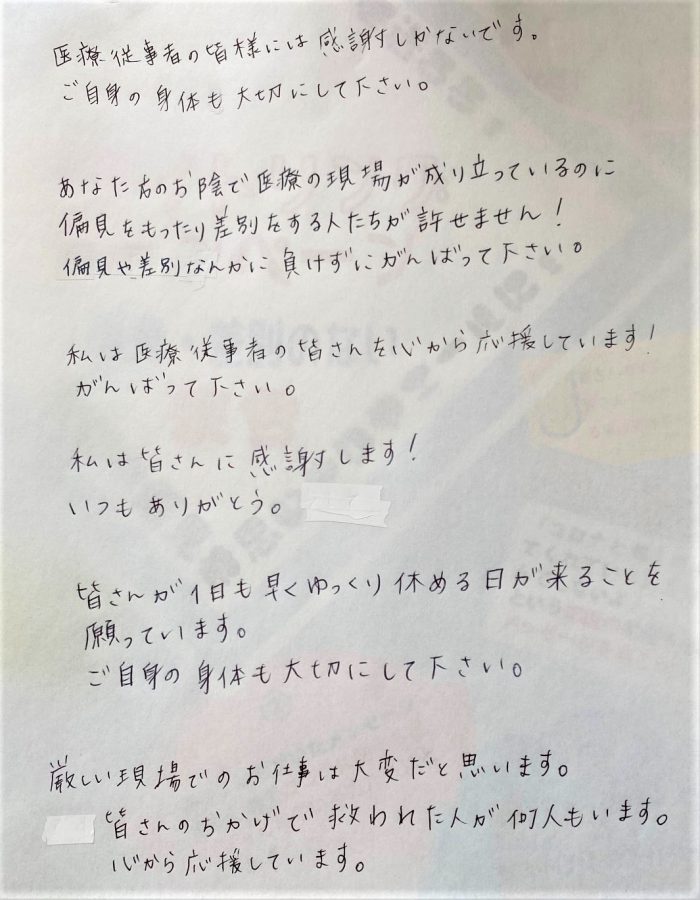 医療従事者の皆様には感謝しかないです。
ご自身の身体も大切にして下さい。
あなた方のお陰で医療の現場が成り立っているのに
偏見をもったり差別をする人たちが許せません!
偏見や差別なんかに負けずにがんばって下さい。
私は医療従事者の皆さんを心から応援しています!
がんばって下さい。
私は皆さんに感謝します!
いつもありがとう。
皆さんが1日も早くゆっくり休める日が来ることを
願っています。
ご自身の身体も大切にして下さい。
厳しい現場でのお仕事は大変だと思います。
皆さんのおかげで救われた人が何人もいます。
心から応援しています。